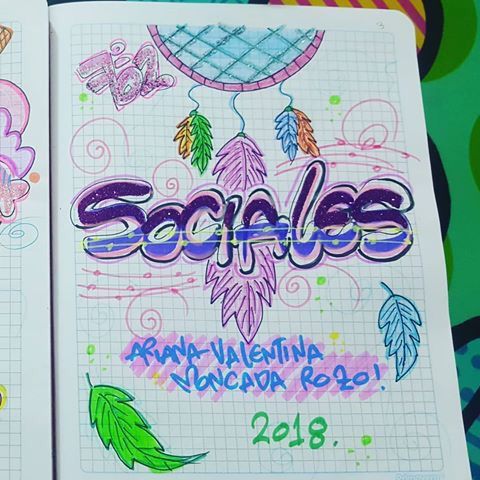 3
SOCIALES
ARIANA VALENTINA
MONCADA ROZO!
2018.